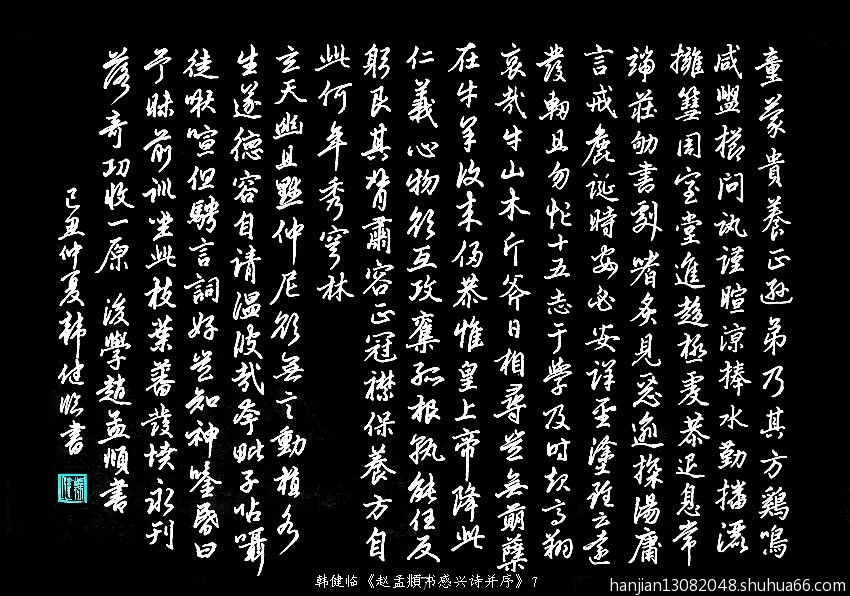 童蒙貴養正遜弟乃其方鷄鳴
咸盥櫛問訊謹暄涼捧水勤播灑
擁篲周室堂進趨極虔恭退息常
端莊劬書劇嗜炙見惡逾探湯庸
言戒麁誕時行必安詳聖塗雖云遠
發軔且勿忙十五志于學及時起高翔
哀哉牛山木斤斧日相尋豈無萌蘖
在牛羊復來侵恭惟皇上帝降此
仁義心物欲互攻奪孤根孰能任反
躬艮其背肅容正冠襟保養方自
此何年秀穹林
玄天幽且默仲尼欲無言動植各
生遂德容自清溫彼哉夸毗子呫囁
徒啾喧但騁言詞好豈知神鑒昏曰
予昧前訓坐此枝葉蕃發憤永刊
落奇功收一原 後學趙孟順書
己丑仲夏韩健临書
韩健临《赵孟順书感兴诗并序》7
hanjian13082048.shuhua66.com